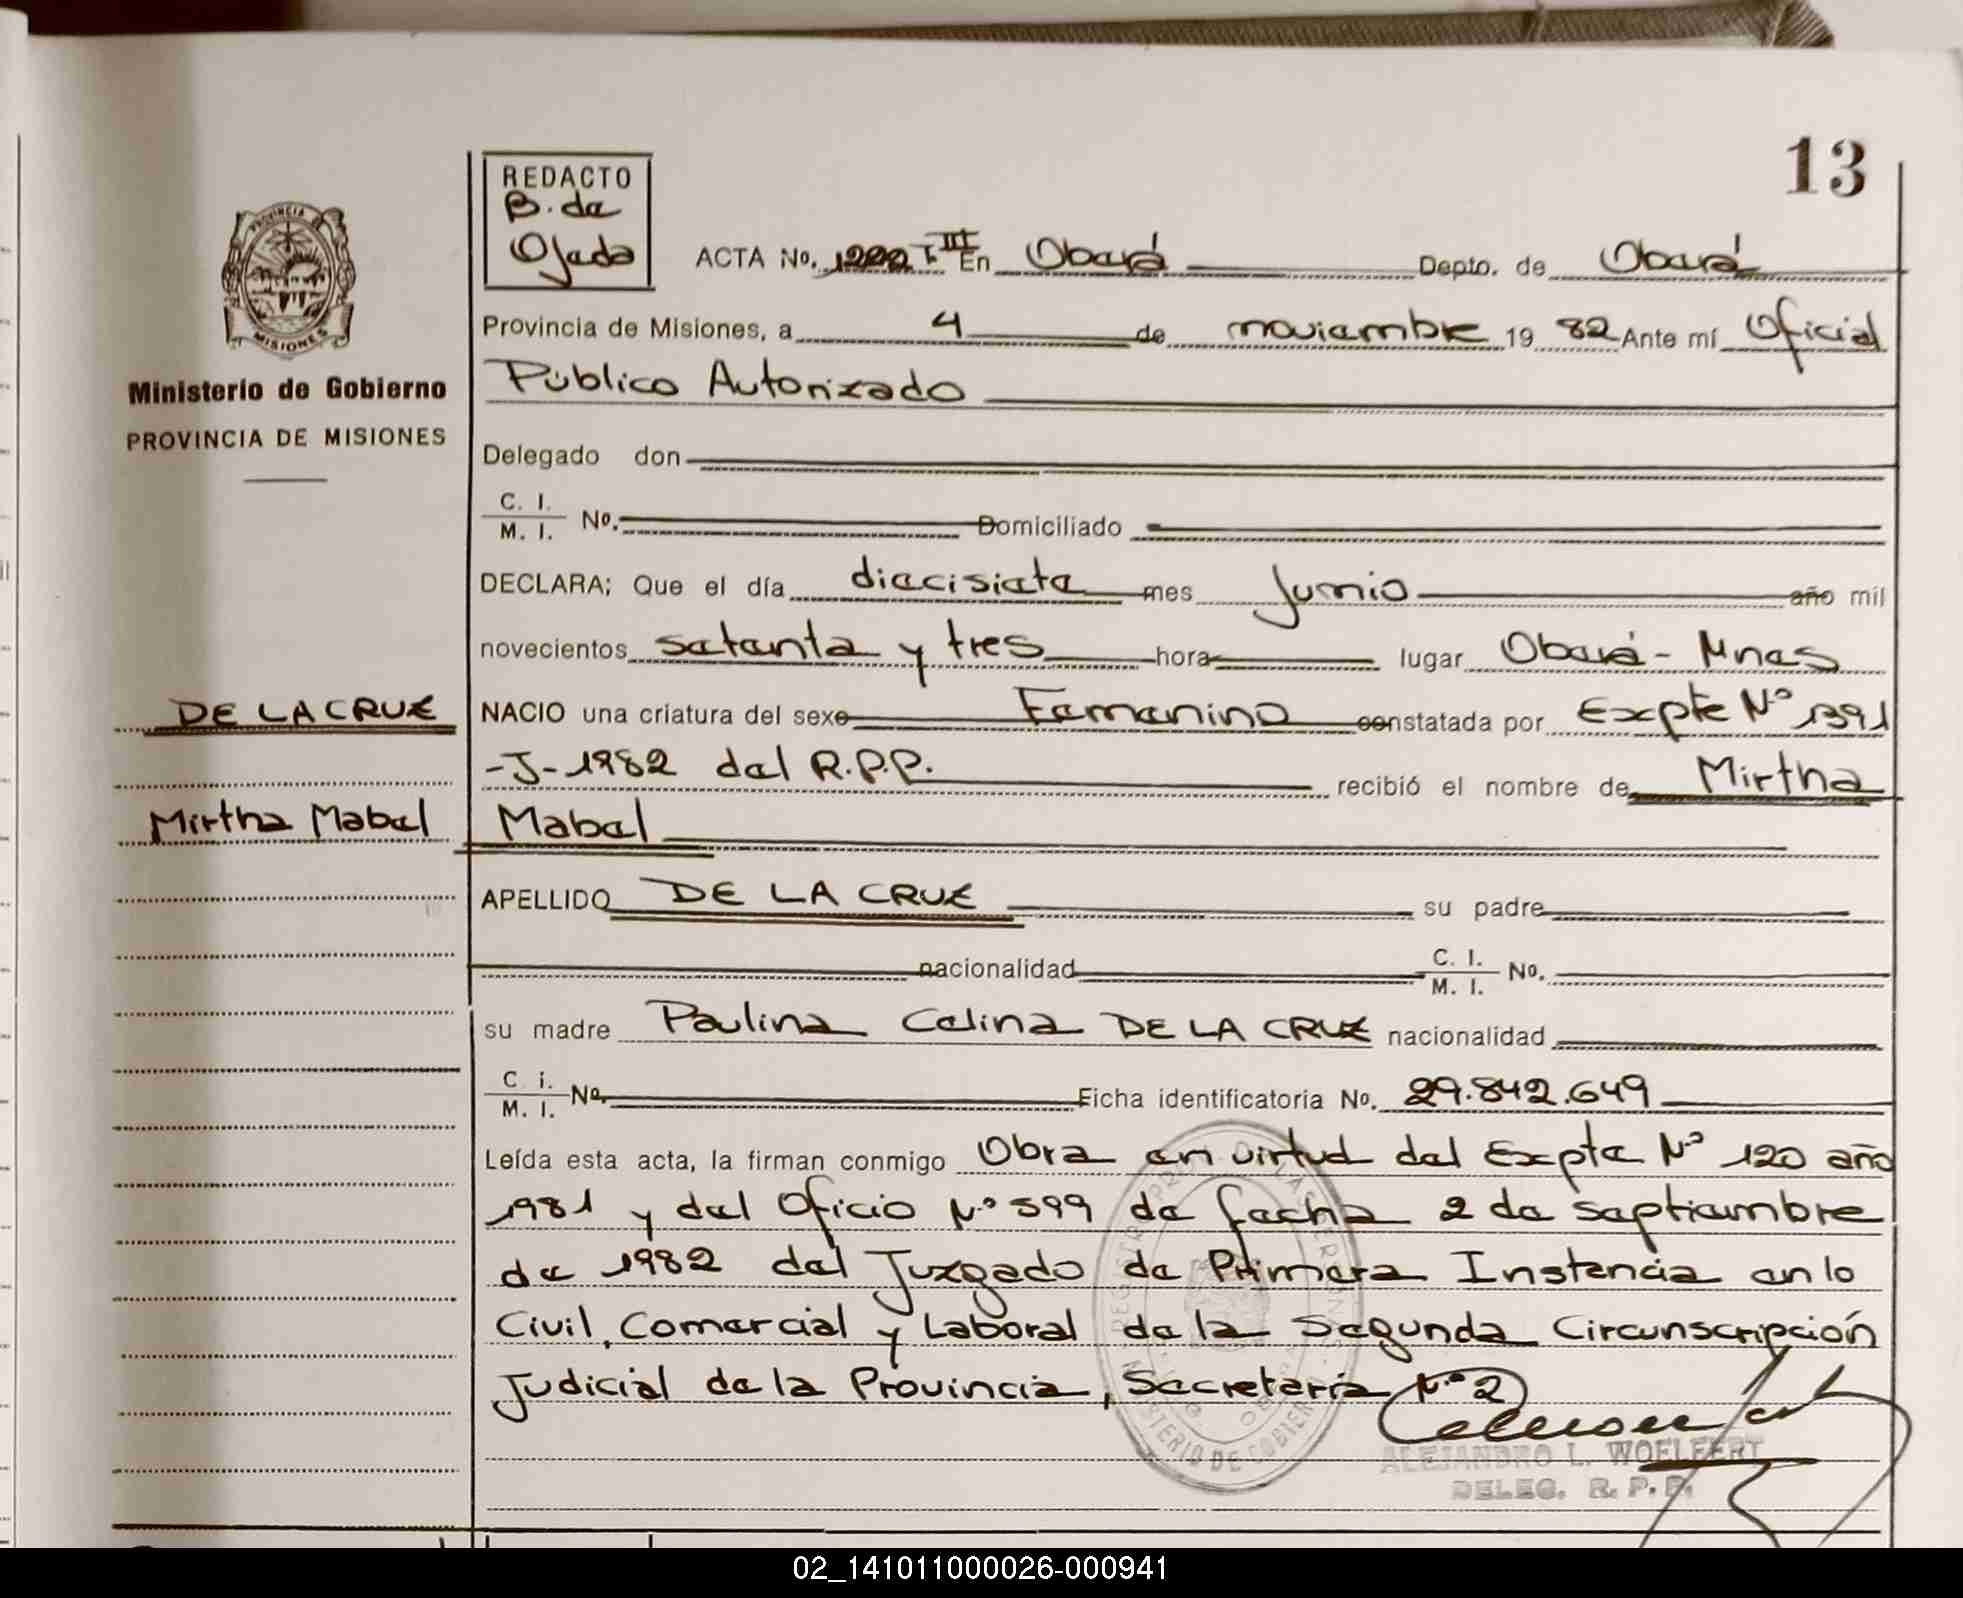 13
REDACTO
B. de
Ojeda
ACTA No. 1222 T. III En Oberá Depto. de Oberá
Provincia de Misiones, a 4 de noviembre 19 82 Ante mí Oficial
Público Autorizado
Delegado don
C. I.
M. I. No. Domiciliado
DECLARA; Que el día diecisiete mes Junio año mil
novecientos setenta y tres hora lugar Oberá - Mnes
NACIO una criatura del sexo Femenino constatada por Expte Nº 1391
-J-1982 del R.P.P. recibió el nombre de Mirtha
Mabel
APELLIDO DE LA CRUZ su padre
nacionalidad C. I.
M. I. No.
su madre Paulina Celina DE LA CRUZ nacionalidad
C i.
M. I. No. Ficha identificatoria No. 29.842.649
Leída esta acta, la firman conmigo Obra en virtud del Expte Nº 120 año
1981 y del Oficio Nº 599 de fecha 2 de septiembre
de 1982 del Juzgado de Primera Instancia en lo
Civil, Comercial y Laboral de la Segunda Circunscripción
Judicial de la Provincia, Secretaría Nº 2
ALEJANDRO L. WOELFERT
DELEG. R. P. P.
PROVINCIA DE
MISIONES
Ministerio de Gobierno
PROVINCIA DE MISIONES
DE LA CRUZ
Mirtha Mabel
MINISTERIO DE GOBIERNO
02_141011000026-000941